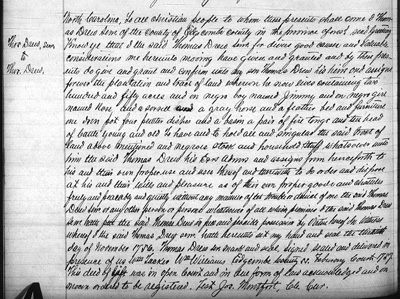 North Carolina, To all christian people to whom these presents shall come I Thom-
as Drew sen of the County of Edgecombe County in the province aforesd send Greeting
Thos. Drew, Senr
to
Thos. Drew.
Know ye that I the said Thomas Drew senr for divers good causes and valuable
considerations me hereunto moving have given and granted and by these pres-
ents do give and grant and confirm unto my son Thomas Drew his heirs and assigns
forever the plantation and tract of land whereon he now lives containing two
hundred and fifty acres and on negro boy named and on negro girl
named Rose and a gray horse and a feather bed and furniture
one iron pot four putter dishes and a bason a pair of fire tongs and ten head
of Cattle young and old To have and to hold all and singular the said tract of
land above mentioned and negroes stock and household stuff whatsoever unto
him the said Thomas Drew his Exrs Admrs and assigns from henceforth to
his and their own proper use and uses thereof and therewith to order and dispose
at his and their wills and pleasure as of their own proper goods and chattels
freely and peaceably and quietly without any manner of let trouble or denial of me the said Thomas
Drew senr or any other person or persons whatsoever of all which premises I the said Thomas Drew
senr have put the said Thomas Drew in peaceable possession by virtue hereof In Witness
whereof I the said Thomas Drew senr have hereunto set my hand and seal the
day of November 1756. Thomas Drew sen mark and seal. Signed sealed and delivered in
presence of us Wm Williams Edgecombe County ss. February Court 1757.
This deed of gift was in open Court and in due form of law acknowledged and on
motion ordered to be registered. Test Jos. Montfort, Clk. Cur.